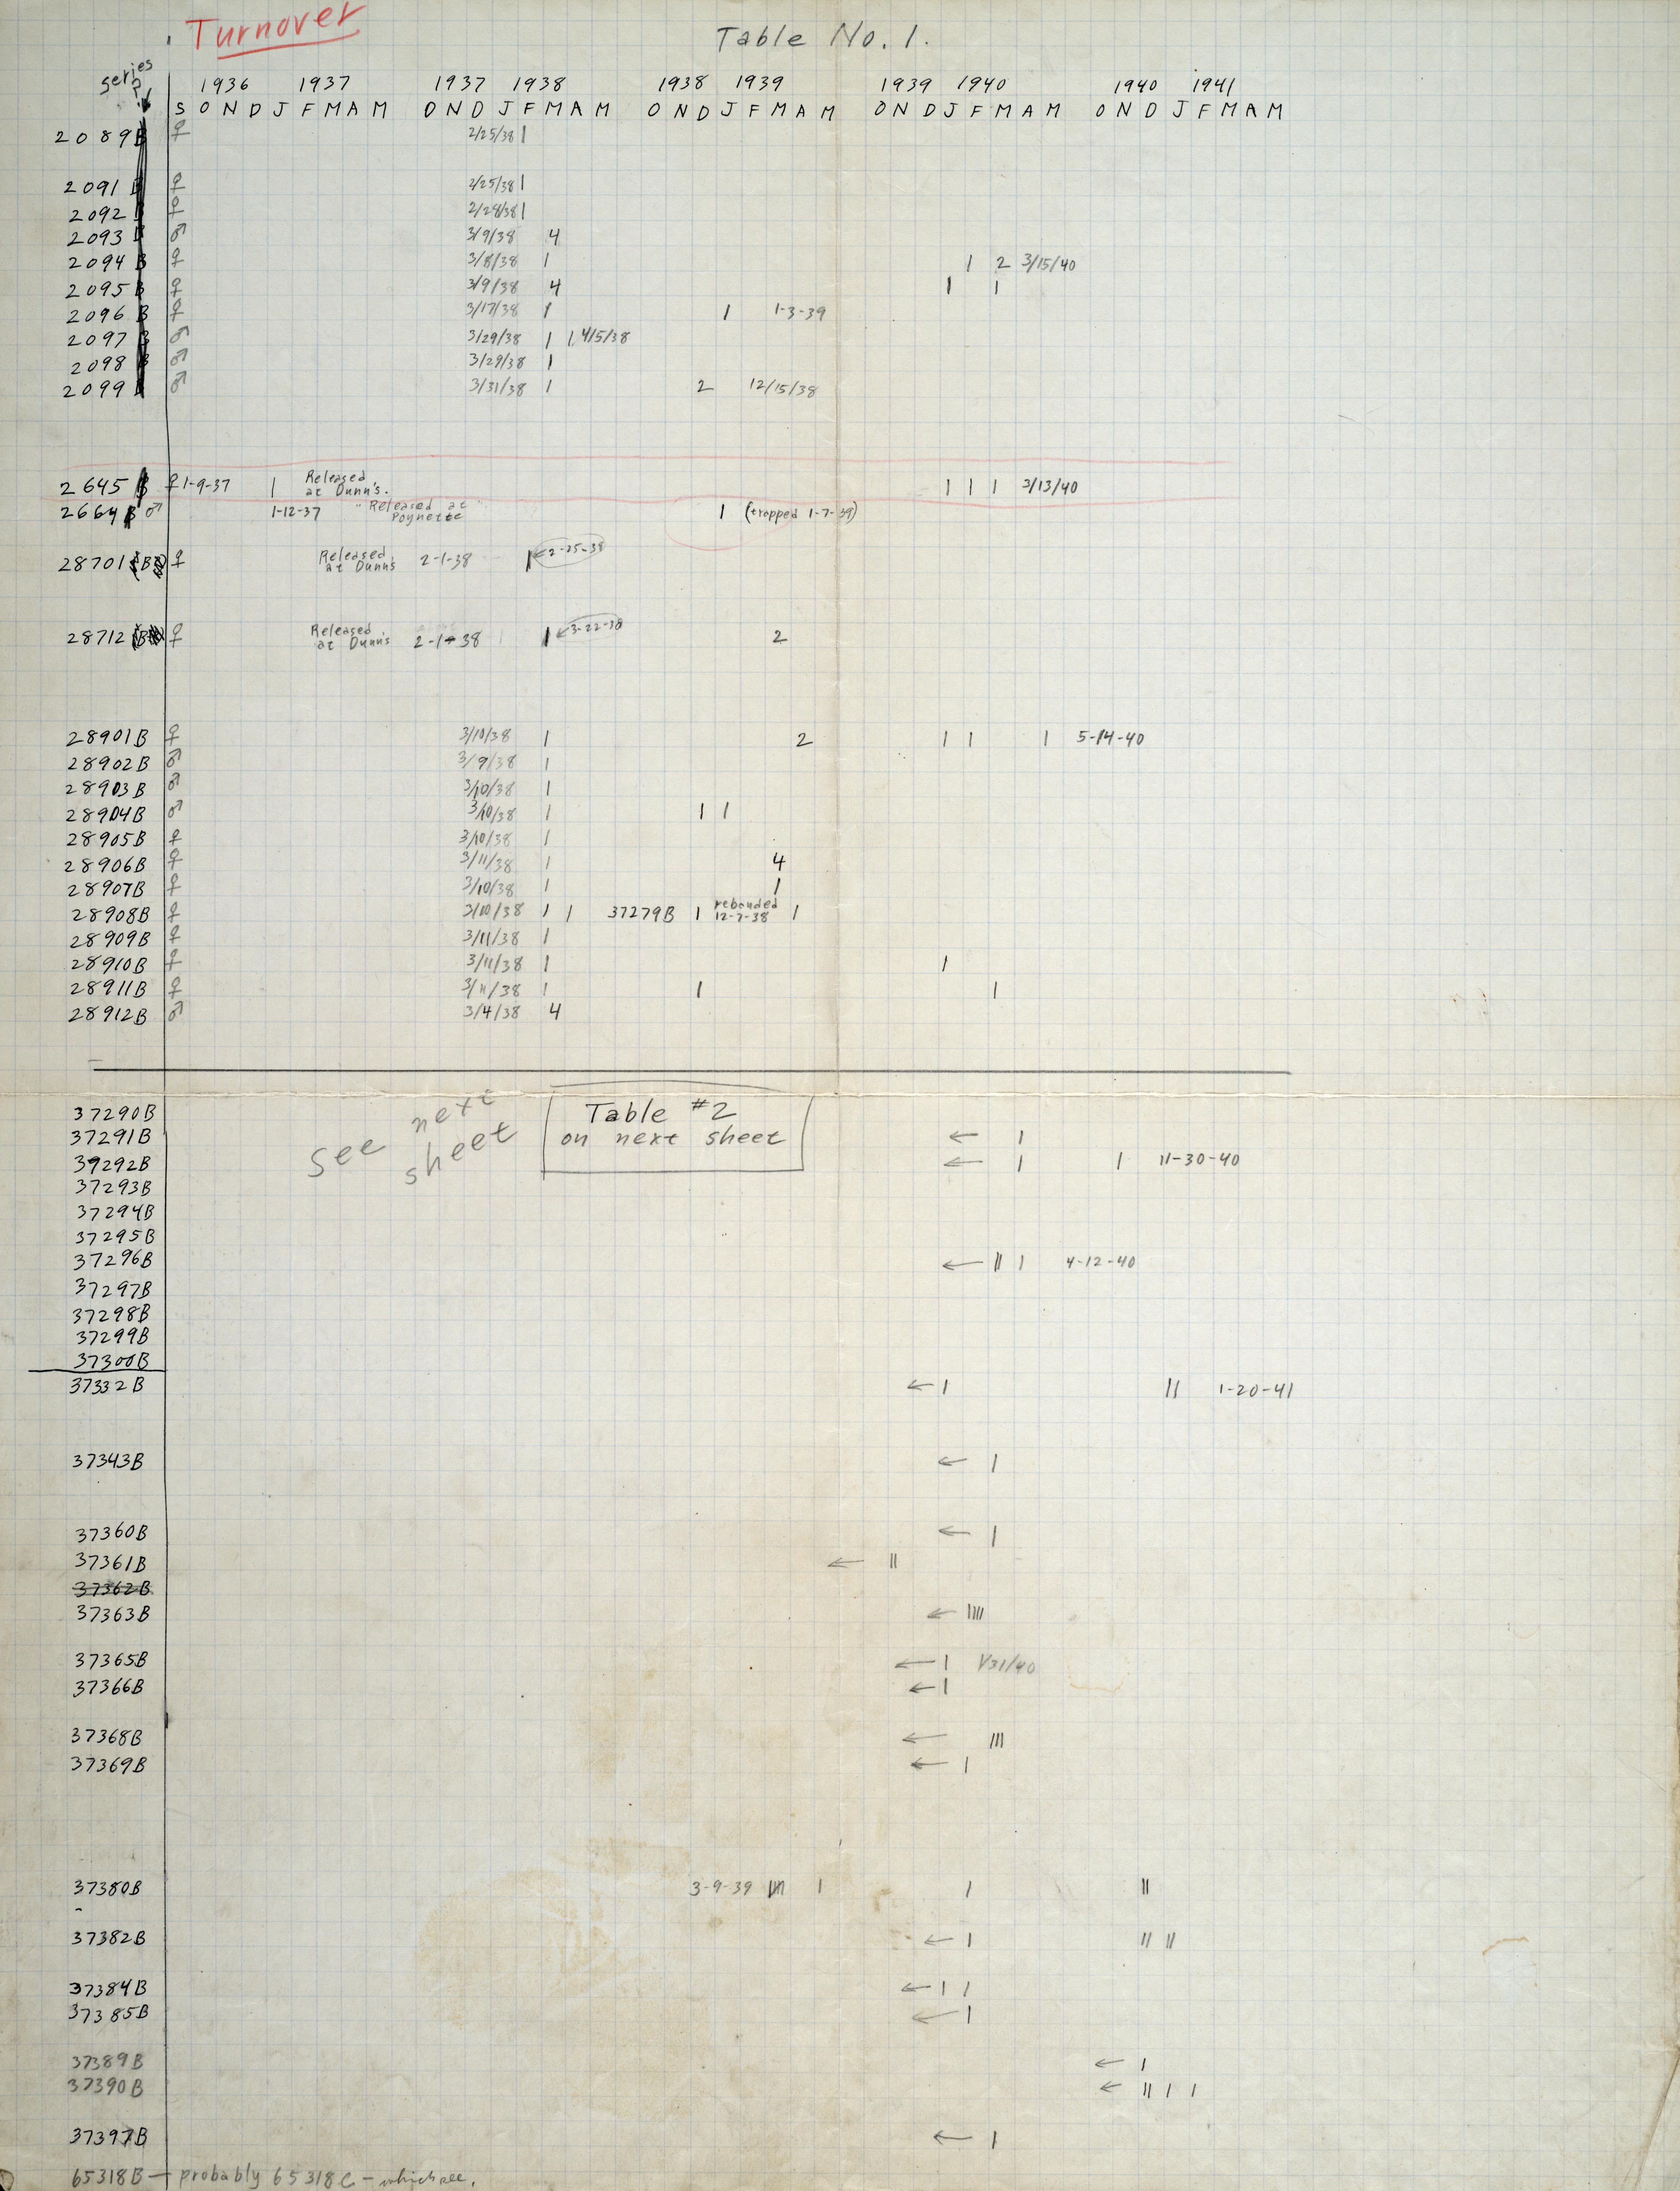 Turnover
Table No. 1.
series
?
1936 1937 1937 1938 1938 1939 1939 1940 1940 1941
S O N D J F M A M O N D J F M A M O N D J F M A M O N D J F M A M O N D J F M A M
2089B ♀ 2/25/38 |
2091B ♀ 2/25/38 |
2092 ♀ 2/28/38 |
2093 ♂ 3/9/38 4
2094B ♀ 3/8/38 | | 2 3/15/40
2095B ♀ 3/9/38 4 | |
2096B ♀ 3/17/38 | | 1-3-39
2097B ♂ 3/29/38 | | 4/5/38
2098B ♂ 3/29/38 |
2099 ♂ 3/31/38 | 2 12/15/38
2645B ♀ 1-9-37 | Released at Dunn's. | | | 3/13/40
2664B ♂ 1-12-37 Released at Poynette | (trapped 1-7-39)
28701 (B ) ♀ Released at Dunn's 2-1-38 | ← 2-25-38
28712 (B ) ♀ Released at Dunn's 2-1-38 | ← 3-22-38 2
28901B ♀ 3/10/38 | 2 | | | 5-14-40
28902B ♂ 3/9/38 |
28903B ♂ 3/10/38 |
28904B ♂ 3/10/38 | | |
28905B ♀ 3/10/38 |
28906B ♀ 3/11/38 | 4
28907B ♀ 3/10/38 | |
28908B ♀ 3/10/38 | | 37279B | rebanded 12-7-38 |
28909B ♀ 3/11/38 |
28910B ♀ 3/11/38 | |
28911B ♀ 3/11/38 | | |
28912B ♂ 3/4/38 4
see next sheet
Table #2
on next sheet
37290B
37291B ← |
37292B ← | | 11-30-40
37293B
37294B
37295B
37296B ← || | 4-12-40
37297B
37298B
37299B
37300B
37332B ← | || 1-20-41
37343B ← |
37360B ← |
37361B ← ||
37362B
37363B ← ||||
37365B ← | 1/31/40
37366B ← |
37368B ← |||
37369B ← |
37380B 3-9-39 | | ||
37382B ← | || ||
37384B ← | |
37385B ← |
37389B ← |
37390B ← || | |
37397B ← |
65318B — probably 65318C — which see.